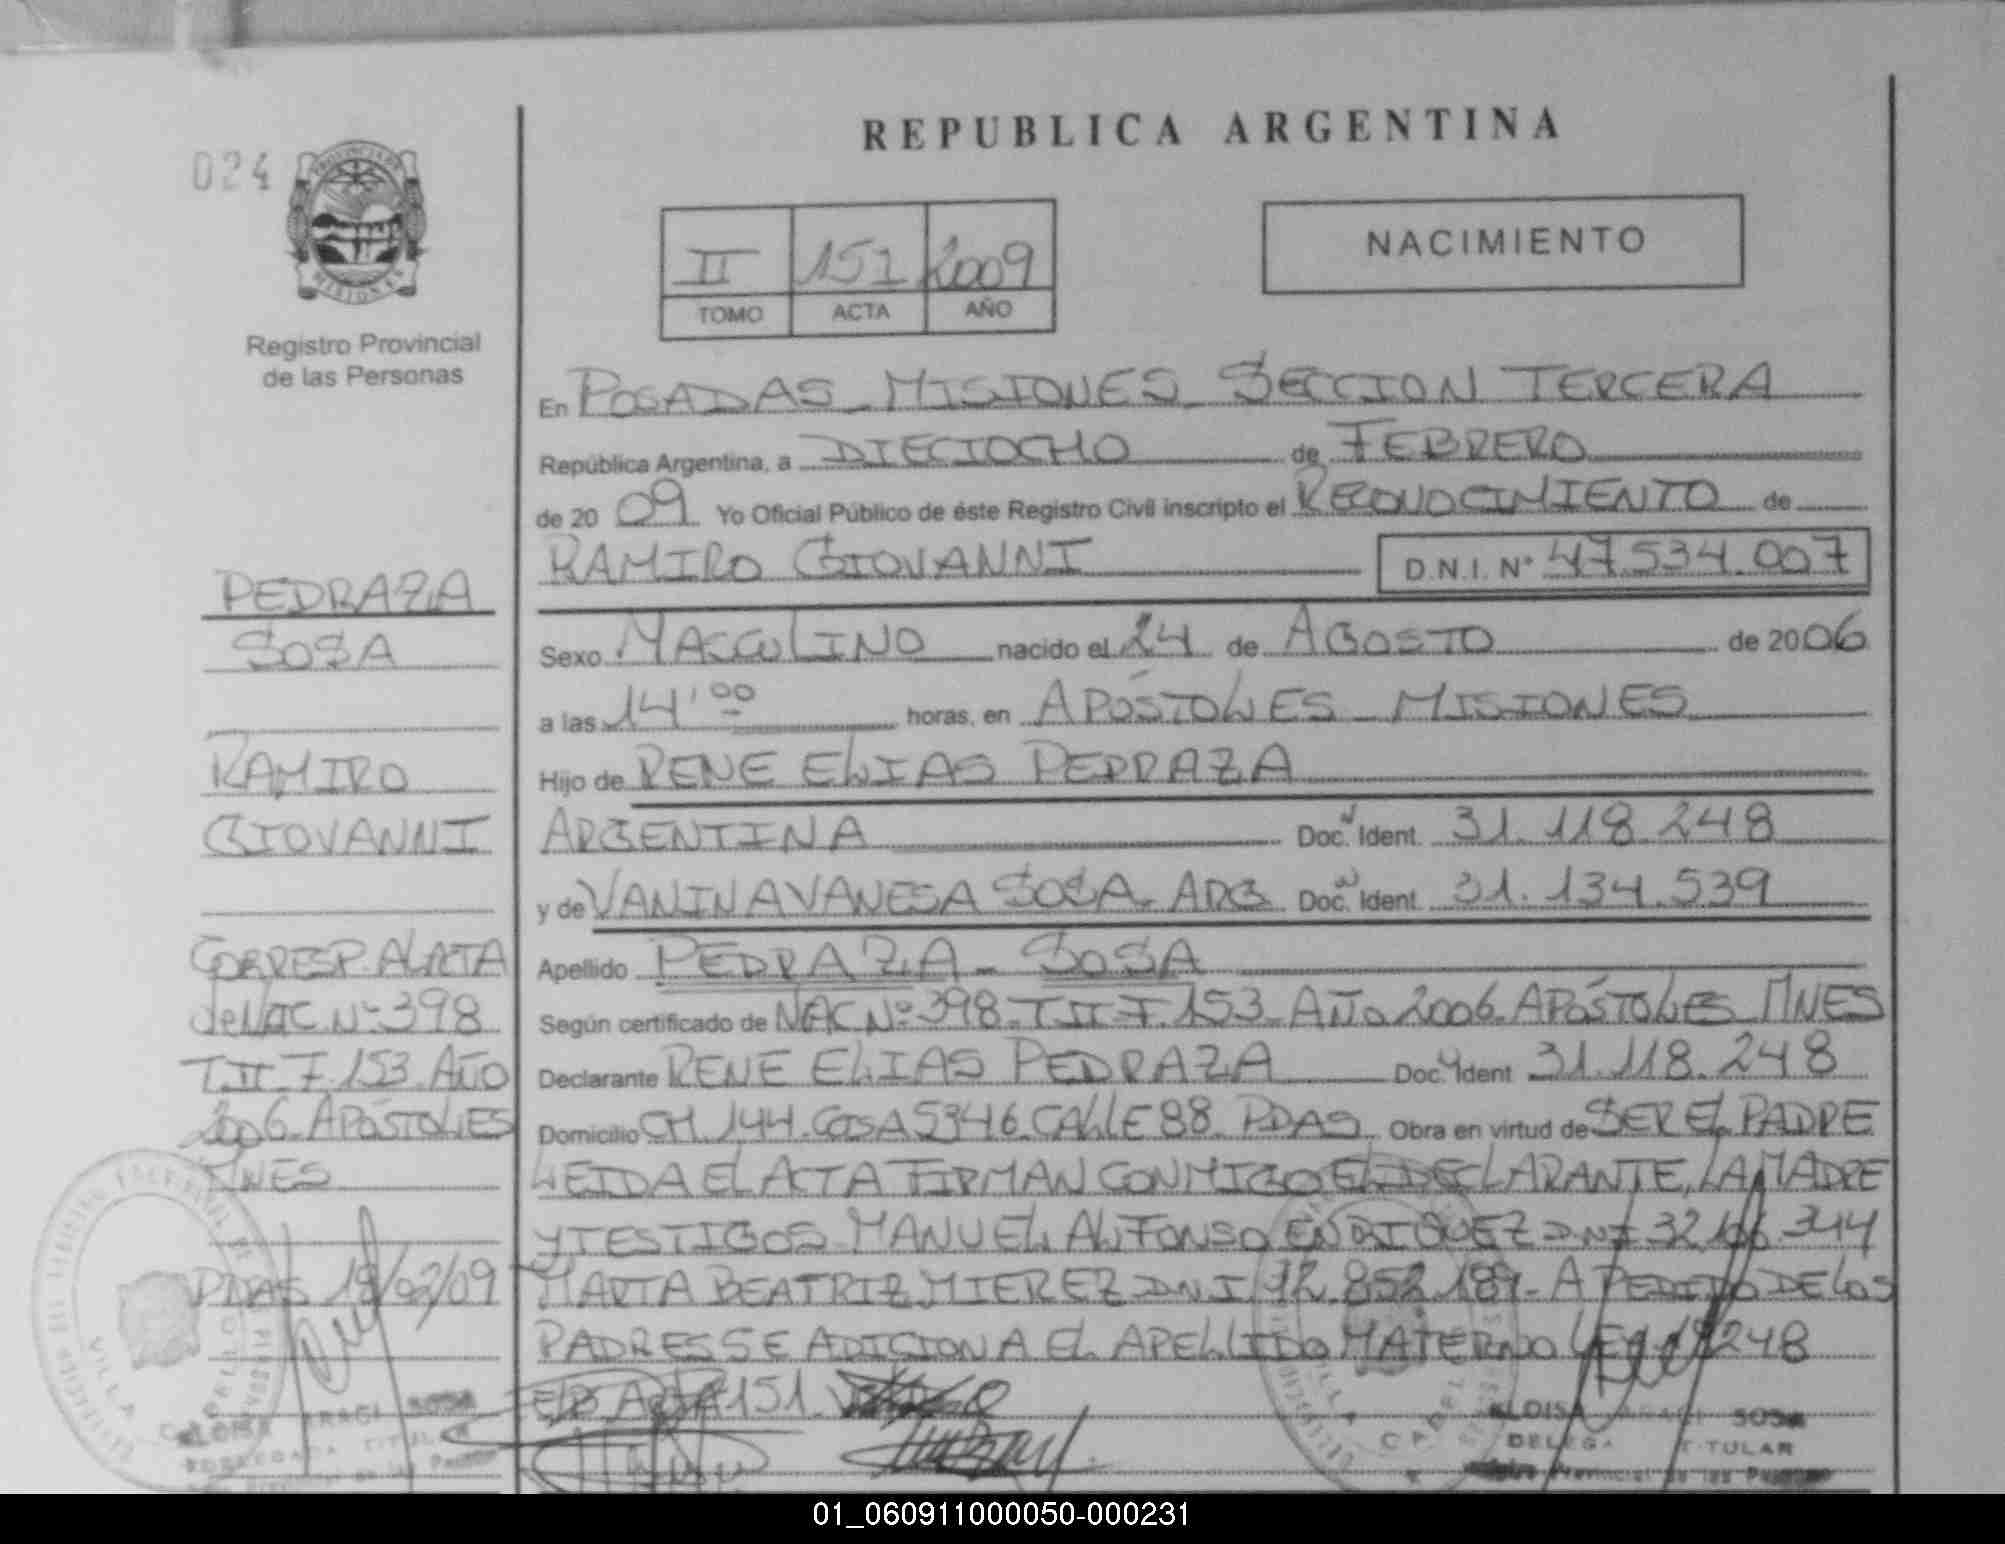 REPUBLICA ARGENTINA
024
PROVINCIA DE
MISIONES
II 151 2009
TOMO ACTA AÑO
NACIMIENTO
Registro Provincial
de las Personas
En POSADAS - MISIONES - SECCION TERCERA
República Argentina, a DIECIOCHO de FEBRERO
de 20 09 Yo Oficial Público de éste Registro Civil inscripto el RECONOCIMIENTO de
RAMIRO GIOVANNI D.N.I. N° 47.534.007
Sexo MASCULINO nacido el 24 de AGOSTO de 2006
a las 14'00 horas, en APÓSTOLES - MISIONES
Hijo de RENE ELIAS PEDRAZA
ARGENTINA Doc. Ident. 31.118.248
y de VANINA VANESA SOSA - ARG Doc. Ident. 31.134.539
Apellido PEDRAZA - SOSA
Según certificado de NAC Nº 398 - T II F. 153 - AÑO 2006 - APÓSTOLES MNES
Declarante RENE ELIAS PEDRAZA Doc. Ident 31.118.248
Domicilio CH. 144 - CASA 5346 - CALLE 88 - PDAS Obra en virtud de SER EL PADRE
LEIDA EL ACTA FIRMAN CONMIGO EL DECLARANTE, LA MADRE
Y TESTIGOS MANUEL ALFONSO ENRIQUEZ DNI 32.166.344
MARTA BEATRIZ MIEREZ DNI 12.852.189 - A PEDIDO DE LOS
PADRES SE ADICIONA EL APELLIDO MATERNO LEY 18248
ACTA 151
PEDRAZA
SOSA
RAMIRO
GIOVANNI
CORRESP AL ACTA
de NAC Nº 398
T II F. 153 AÑO
2006 - APÓSTOLES
MNES
PDAS 18/02/09
VILLA CABELLO
SOSA
TITULAR
SOSA
TITULAR
Provincial de las
01_060911000050-000231